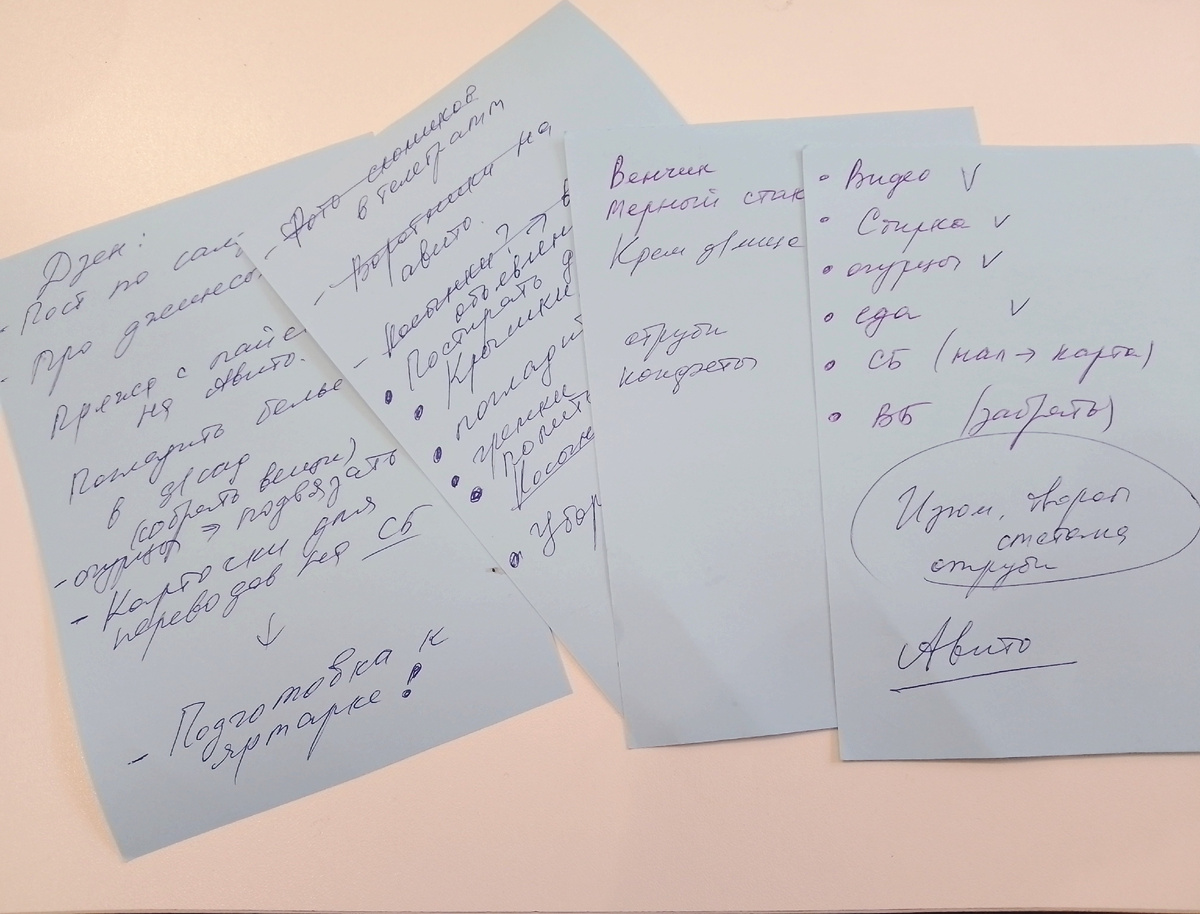 Дзен:
- Пост по сал
- Про джинсы
Пряжа с пайе
на Авито.
Погладить белье
в д/сад
(собрать вещи)
- огурцы → подвязать
- Карточки для
переводов на СБ
↓
- Подготовка к
ярмарке!
- Фото слоников
в телеграмм
- Воротники на
авито.
- Косынки? → в
объявлен
• Постирать д
• Крышки
• погладит
• гренки
• Полить
Косын
• Убор
Венчик
Мерный стак
Крем д/лица
отруби
конфеты
• Видео V
• Стирка V
• огурцы V
• еда V
• СБ (нал → карта)
• ВБ (забрать)
Изюм, творог
сметана
отруби
Авито